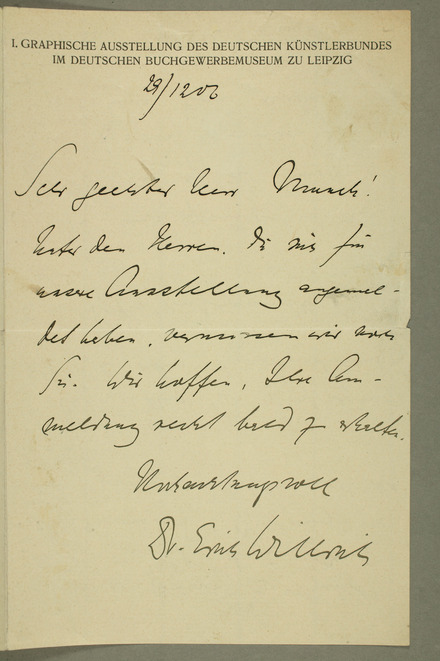 I. GRAPHISCHE AUSSTELLUNG DES DEUTSCHEN KÜNSTLERBUNDES
IM DEUTSCHEN BUCHGEWERBEMUSEUM ZU LEIPZIG
29/12 06
Sehr geehrter Herr Munch!
Unter den Herren, die sich für
unsere Ausstellung angemel-
det haben, vermissen wir noch
Sie. Wir hoffen, Ihre An-
meldung recht bald zu erhalten.
Hochachtungsvoll
Dr. Erich Willrich